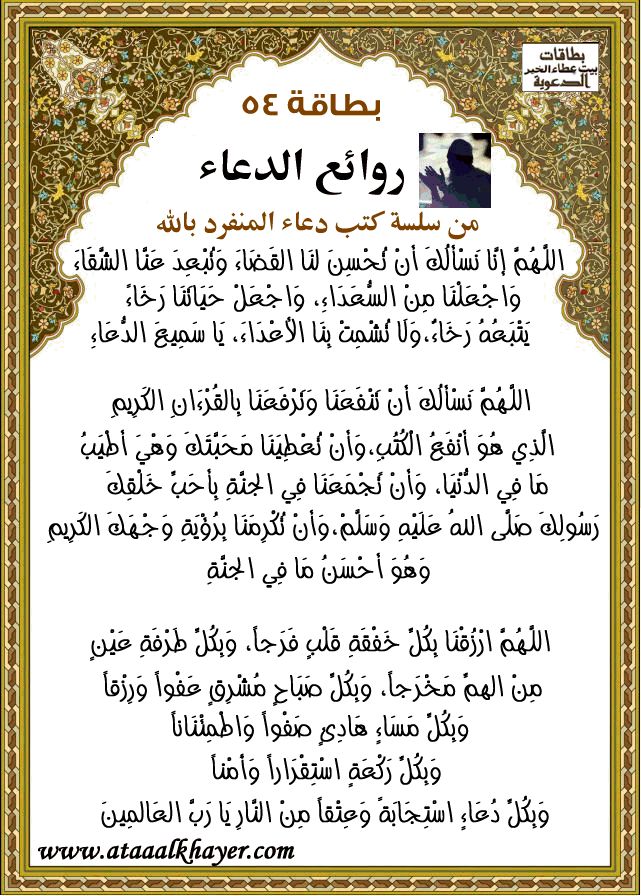 بطاقات
بيت عطاء الخير
الدعوية
بطاقة ٥٤
روائع الدعاء
من سلسة كتب دعاء المنفرد بالله
اللَّهُمَّ إنَّا نَسْألُكَ أنْ تُحْسِنَ لنَا القَضَاءَ وَتُبْعِدَ عَنَّا الشَّقَاءَ
وَاجْعَلْنَا مِنْ السُّعَدَاءِ، وَاجْعَلْ حَيَاتَنَا رَخَاءً
يَتْبَعُهُ رَخَاءٌ،وَلَا تُشْمِتْ بِنَا الْأعْدَاءَ، يَا سَمِيعَ الدُّعَاءِ
اللَّهُمَّ نَسْألُكَ أنْ تَنْفَعَنَا وَتَرْفَعَنَا بِالقُرْءَانِ الكَرِيمِ
الَّذِي هُوَ أنْفَعُ الْكُتُبِ،وَأنْ تُعْطِيَنَا مَحَبَّتَكَ وَهْيَ أطْيَبُ
مَا فِي الدُّنْيَا، وَأنْ تَجْمَعَنَا فِي الجنَّةِ بِأحَبِّ خَلْقِكَ
رَسُولِكَ صَلَّى اللهُ عَلَيْهِ وَسَلَّمْ،وَأنْ تُكْرِمَنَا بِرُؤْيَةِ وَجْهَكَ الكَرِيمِ
وَهُوَ أحْسَنُ مَا فِي الجنَّةِ
اللَّهُمَّ ارْزُقْنَا بِكُلِّ خَفْقَةِ قَلْبٍ فَرَجاً، وَبِكُلِّ طَرْفَةِ عَيْنٍ
مِنْ الهمِّ مَخْرَجاً، وَبِكُلِّ صَبَاحٍ مُشْرِقٍ عَفْواً وَرِزْقاً
وَبِكُلِّ مَسَاءٍ هَادِئٍ صَفْواً وَاطْمِئْنَاناً
وَبِكُلِّ رَكْعَةٍ اسْتِقْرَاراً وَأمْناً
وَبِكُلِّ دُعَاءٍ اسْتِجَابَةً وَعِتْقاً مِنْ النَّارِ يَا رَبَّ العَالمِينَ
www.ataaalkhayer.com